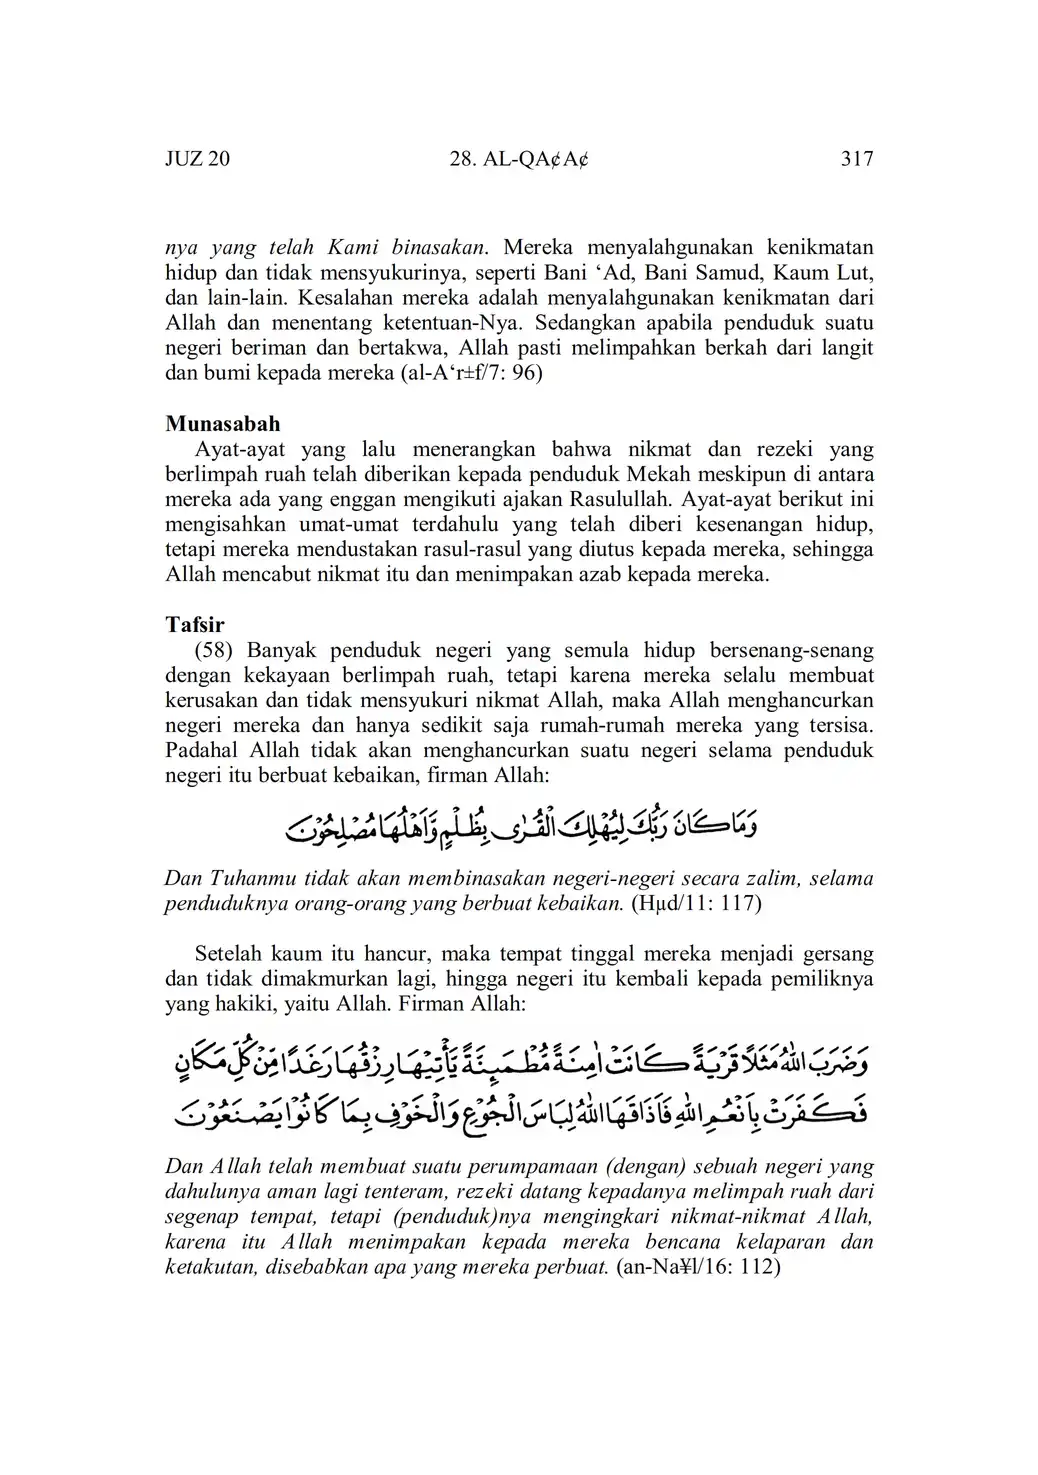 JUZ 20 28. AL-QA¢A¢ 317
nya yang telah Kami binasakan. Mereka menyalahgunakan kenikmatan
hidup dan tidak mensyukurinya, seperti Bani ‘Ad, Bani Samud, Kaum Lut,
dan lain-lain. Kesalahan mereka adalah menyalahgunakan kenikmatan dari
Allah dan menentang ketentuan-Nya. Sedangkan apabila penduduk suatu
negeri beriman dan bertakwa, Allah pasti melimpahkan berkah dari langit
dan bumi kepada mereka (al-A‘r±f/7: 96)
Munasabah
Ayat-ayat yang lalu menerangkan bahwa nikmat dan rezeki yang
berlimpah ruah telah diberikan kepada penduduk Mekah meskipun di antara
mereka ada yang enggan mengikuti ajakan Rasulullah. Ayat-ayat berikut ini
mengisahkan umat-umat terdahulu yang telah diberi kesenangan hidup,
tetapi mereka mendustakan rasul-rasul yang diutus kepada mereka, sehingga
Allah mencabut nikmat itu dan menimpakan azab kepada mereka.
Tafsir
(58) Banyak penduduk negeri yang semula hidup bersenang-senang
dengan kekayaan berlimpah ruah, tetapi karena mereka selalu membuat
kerusakan dan tidak mensyukuri nikmat Allah, maka Allah menghancurkan
negeri mereka dan hanya sedikit saja rumah-rumah mereka yang tersisa.
Padahal Allah tidak akan menghancurkan suatu negeri selama penduduk
negeri itu berbuat kebaikan, firman Allah:
وَمَا كَانَ رَبُّكَ لِيُهْلِكَ الْقُرٰى بِظُلْمٍ وَّاَهْلُهَا مُصْلِحُوْنَ
Dan Tuhanmu tidak akan membinasakan negeri-negeri secara zalim, selama
penduduknya orang-orang yang berbuat kebaikan. (Hµd/11: 117)
Setelah kaum itu hancur, maka tempat tinggal mereka menjadi gersang
dan tidak dimakmurkan lagi, hingga negeri itu kembali kepada pemiliknya
yang hakiki, yaitu Allah. Firman Allah:
وَضَرَبَ اللّٰهُ مَثَلًا قَرْيَةً كَانَتْ اٰمِنَةً مُّطْمَىِٕنَّةً يَّأْتِيْهَا رِزْقُهَا رَغَدًا مِّنْ كُلِّ مَكَانٍ
فَكَفَرَتْ بِاَنْعُمِ اللّٰهِ فَاَذَاقَهَا اللّٰهُ لِبَاسَ الْجُوْعِ وَالْخَوْفِ بِمَا كَانُوْا يَصْنَعُوْنَ
Dan Allah telah membuat suatu perumpamaan (dengan) sebuah negeri yang
dahulunya aman lagi tenteram, rezeki datang kepadanya melimpah ruah dari
segenap tempat, tetapi (penduduk)nya mengingkari nikmat-nikmat Allah,
karena itu Allah menimpakan kepada mereka bencana kelaparan dan
ketakutan, disebabkan apa yang mereka perbuat. (an-Na¥l/16: 112)